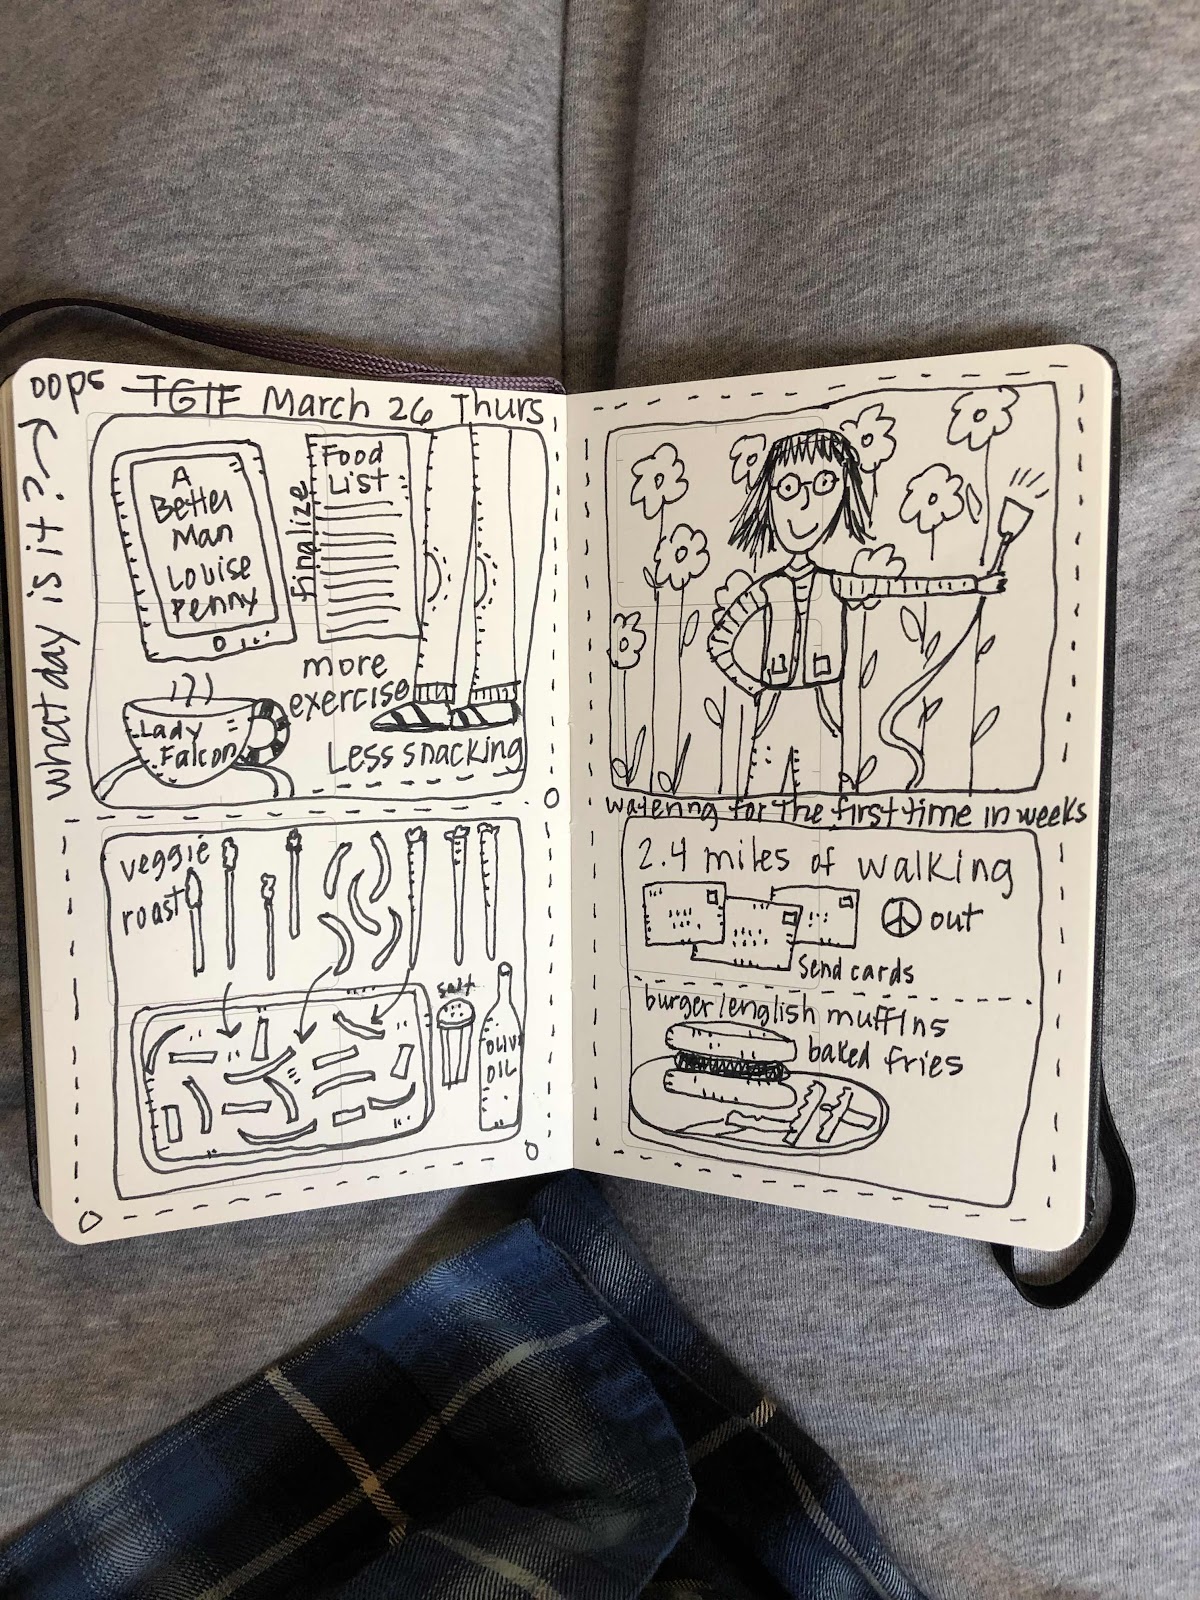 oops TGIF March 26 Thurs
what day is it?
A
Better
Man
Louise
Penny
Food
List
finalize
more
exercise
Less snacking
Lady
Falcon
veggie
roast
salt
OLIVE
OIL
watering for the first time in weeks
2.4 miles of walking
out
send cards
burger/english muffins
baked fries